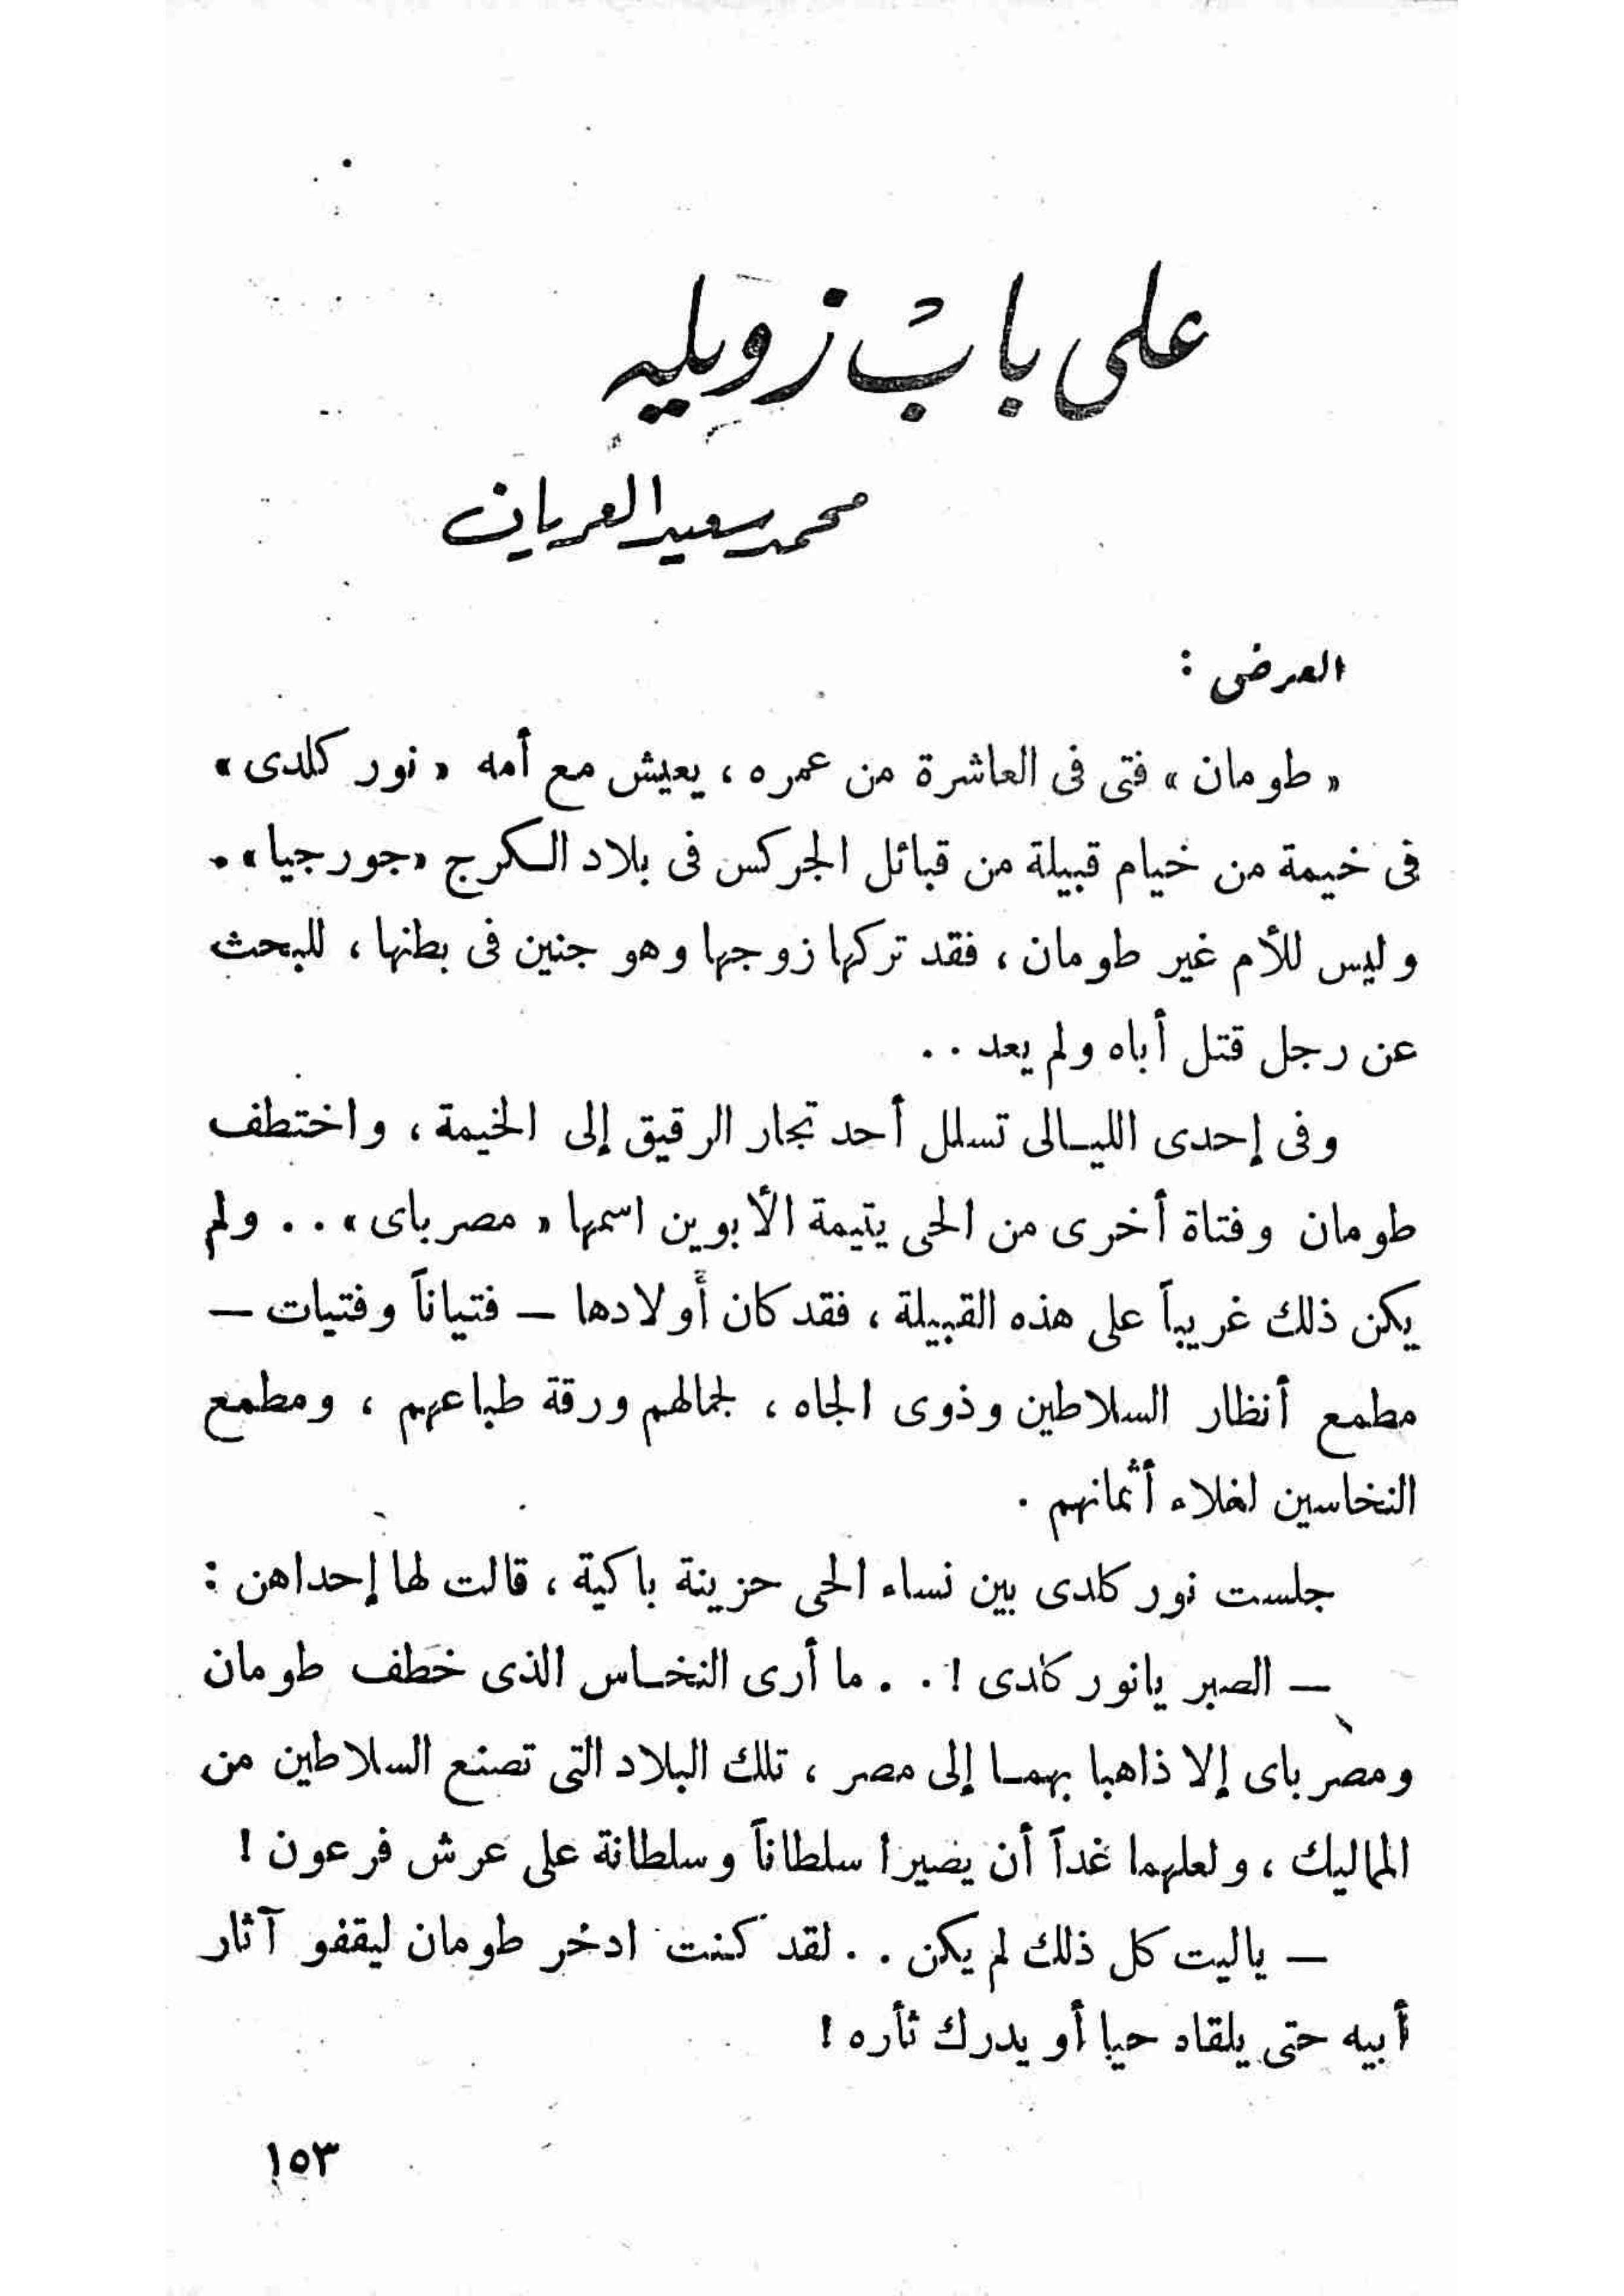 على باب زويله
محمد سعيد العريان
العرض :
« طومان » فتى فى العاشرة من عمره ، يعيش مع أمه « نور كلدى »
فى خيمة من خيام قبيلة من قبائل الجركس فى بلاد الكرج «جورجيا» .
وليس للأم غير طومان ، فقد تركها زوجها وهو جنين فى بطنها ، للبحث
عن رجل قتل أباه ولم يعد . .
وفى إحدى الليالى تسلل أحد تجار الرقيق إلى الخيمة ، واختطف
طومان وفتاة أخرى من الحى يتيمة الأبوين اسمها « مصر باى » . . ولم
يكن ذلك غريباً على هذه القبيلة ، فقد كان أولادها — فتياناً وفتيات —
مطمع أنظار السلاطين وذوى الجاه ، لجمالهم ورقة طباعهم ، ومطمع
النخاسين لغلاء أثمانهم .
جلست نور كلدى بين نساء الحى حزينة باكية ، قالت لها إحداهن :
— الصبر يانور كلدى ! . . ما أرى النخاس الذى خطف طومان
ومصر باى إلا ذاهبا بهما إلى مصر ، تلك البلاد التى تصنع السلاطين من
المماليك ، ولعلهما غداً أن يصيرا سلطاناً وسلطانة على عرش فرعون !
— ياليت كل ذلك لم يكن . . لقد كنت ادخر طومان ليقفو آثار
أبيه حتى يلقاه حيا أو يدرك ثأره !
١٥٣